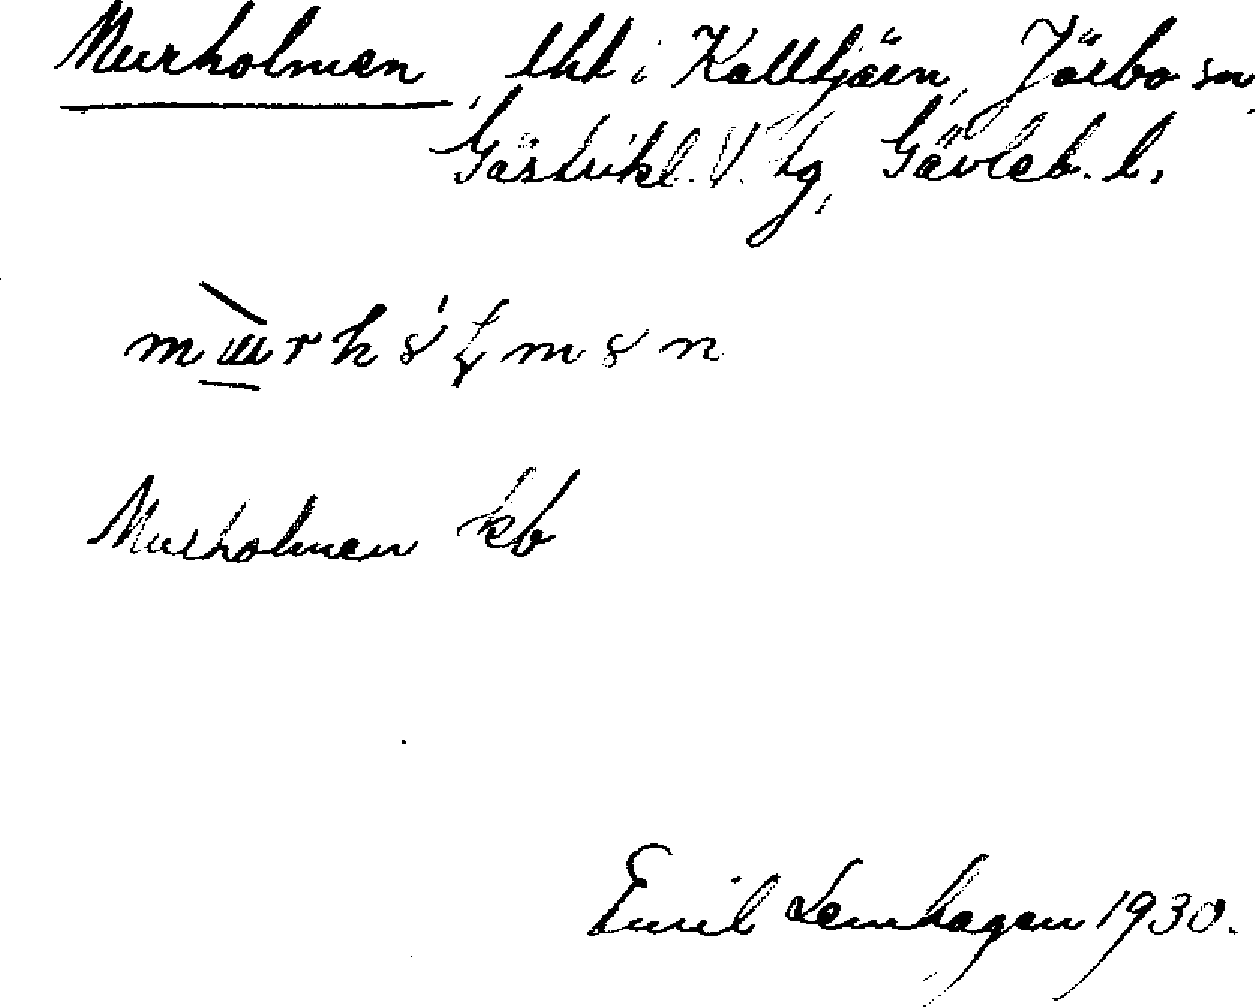 Murholmen, tkt i Kalltjärn, Järbo sn,
Gästrikl. V. tg, Gävleb. l.
Murholmen kb
Emil Lemhagen 1930.